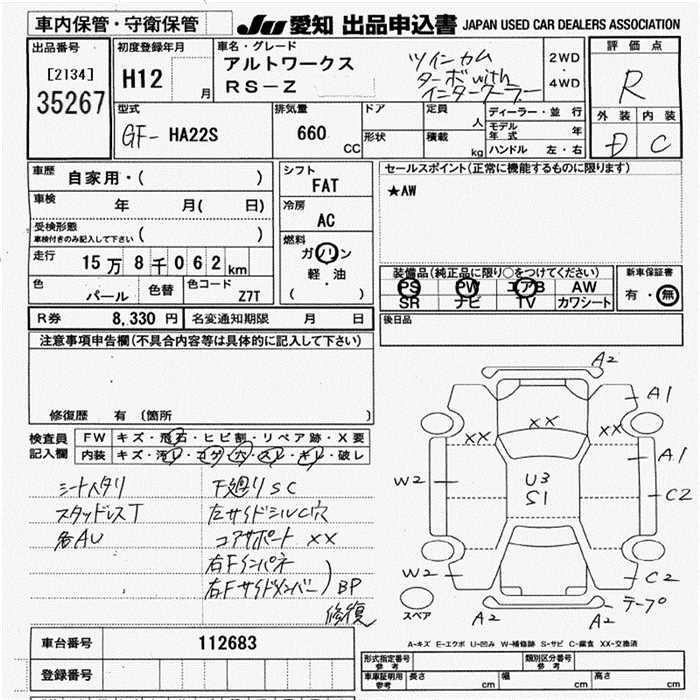 車内保管・守衛保管 JU 愛知 出品申込書 JAPAN USED CAR DEALERS ASSOCIATION
出品番号
[2134]
35267
初度登録年月
H12 月
車名・グレード
アルトワークス
RS-Z
ツインカム
ターボwith
インタークーラー
2WD
・
4WD
評価点
R
外装 内装
D C
型式
GF- HA22S
排気量
660 CC
ドア
形状
定員 人
積載 kg
ディーラー・並行
モデル年式 年
ハンドル 左・右
車歴 自家用・( )
車検 年 月( 日)
受検形態
車検付きのみ記入して下さい ( )
走行 15万8千062km
色 パール 色替 色コード Z7T
シフト
FAT
冷房
AC
燃料
ガソリン
軽・油
( )
セールスポイント(正常に機能するものに限ります)
★AW
装備品(純正品に限り○をつけてください)
PS PW エアB AW
SR ナビ TV カワシート
新車保証書
有・無
R券 8,330円 名変通知期限 月 日
後日品
注意事項申告欄(不具合内容等は具体的に記入して下さい)
修復歴 有(箇所 )
検査員
記入欄
FW キズ・飛石・ヒビ割・リペア跡・X要
内装 キズ・汚レ・コゲ・穴・スレ・キレ・破レ
シートヘタリ
スタッドレスT
各AU
下廻りSC
左サイドシルC穴
コアサポート XX
右Fインパネ
右Fサイドメンバー) BP
修復
A2
A1
XX
XX
XX
A1
W2
U3
S1
C2
W2
C2
スペア
A2
A2
テープ
A-キズ E-エクボ U-凹み W-補修跡 S-サビ C-腐食 XX-交換済
車台番号 112683
登録番号
形式指定番号
参考
類別区分番号
参考
車庫証明用
参考
長さ cm 幅 cm 高さ cm